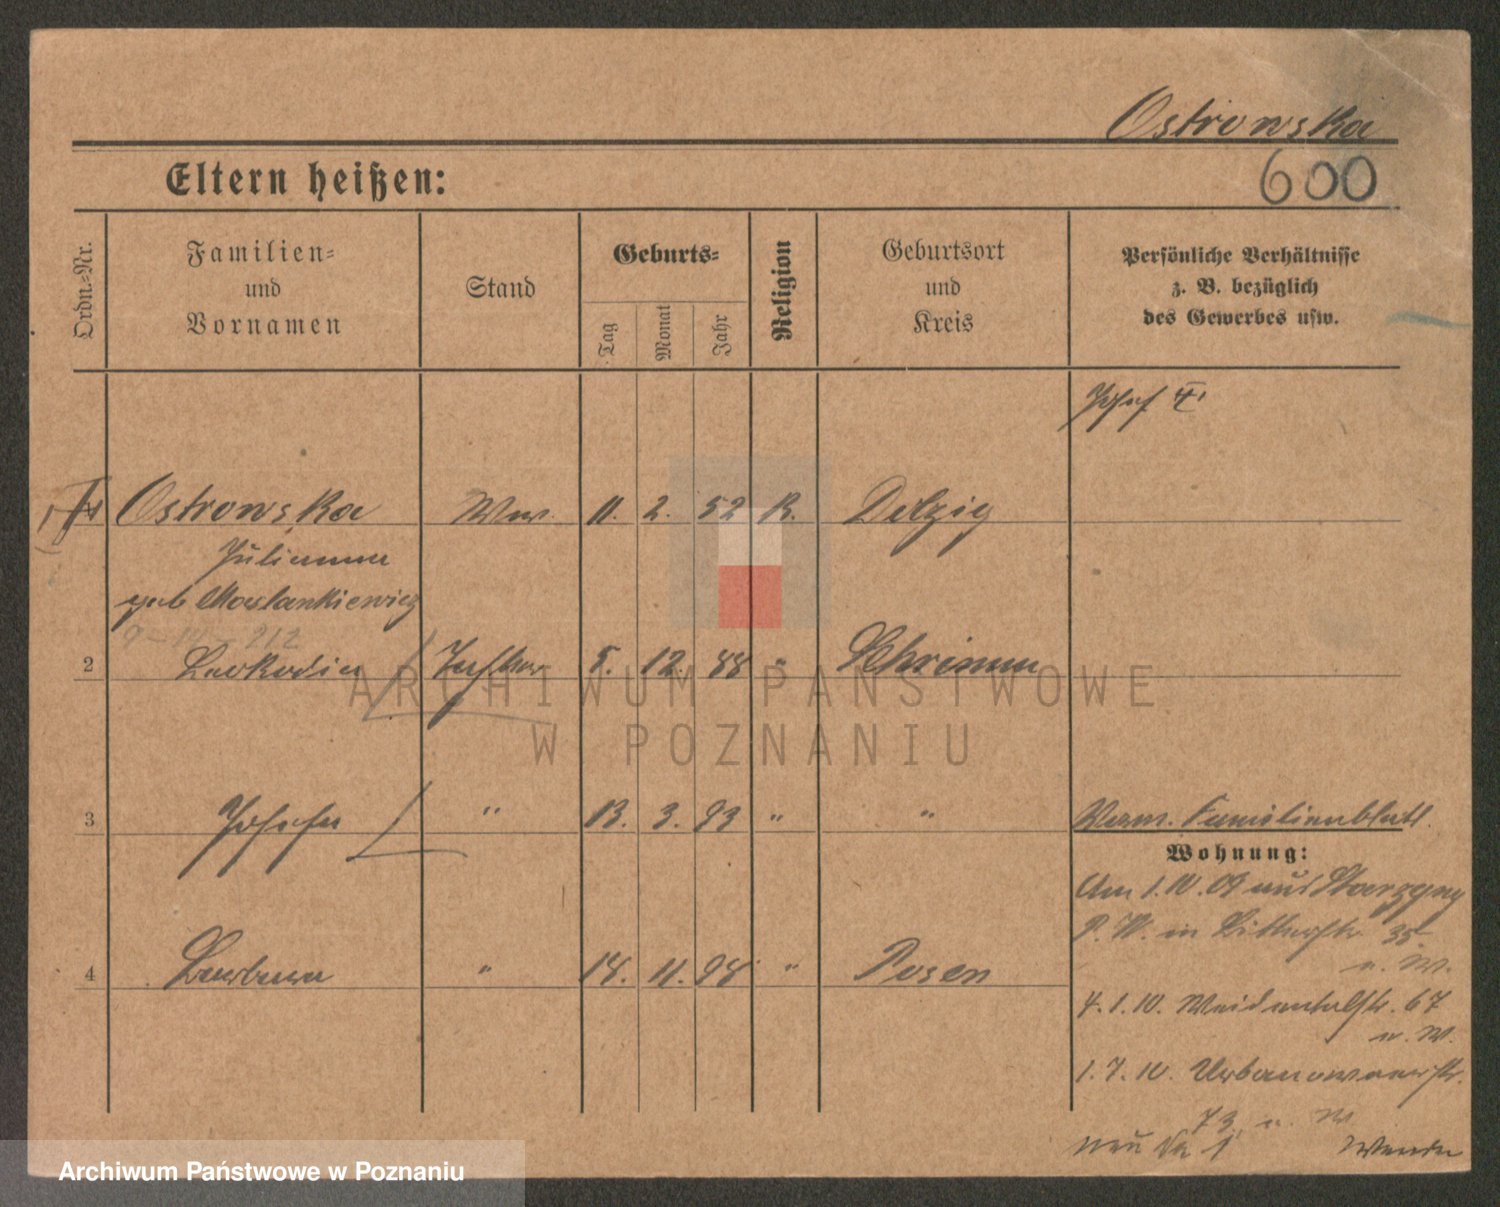 Ostrowska
Eltern heißen:
600
Ordn.-Nr.
Familien-
und
Vornamen
Stand
Geburts-
Tag
Monat
Jahr
Religion
Geburtsort
und
Kreis
Persönliche Verhältnisse
z. B. bezüglich
des Gewerbes usw.
Josef
1 Ostrowska Ww. 11. 2. 52 K. Dolzig
Julianna
geb Maslankiewicz
9-14-212
2 Leokadia Tochter 5. 12. 88 " Schrimm
ARCHIWUM PAŃSTWOWE
W POZNANIU
3 Josefa " 13. 3. 93 " "
Verm. Familienblatt.
Wohnung:
Am 1.10.09 aus
P. W. in 35
u. W.
4 Barbara " 18. 11. 98 " Posen
4.1.10. Weidentalstr. 67
u. W.
1.7.10. Urbanowoerstr.
73 u. W
neu No 1 Wenden
Archiwum Państwowe w Poznaniu